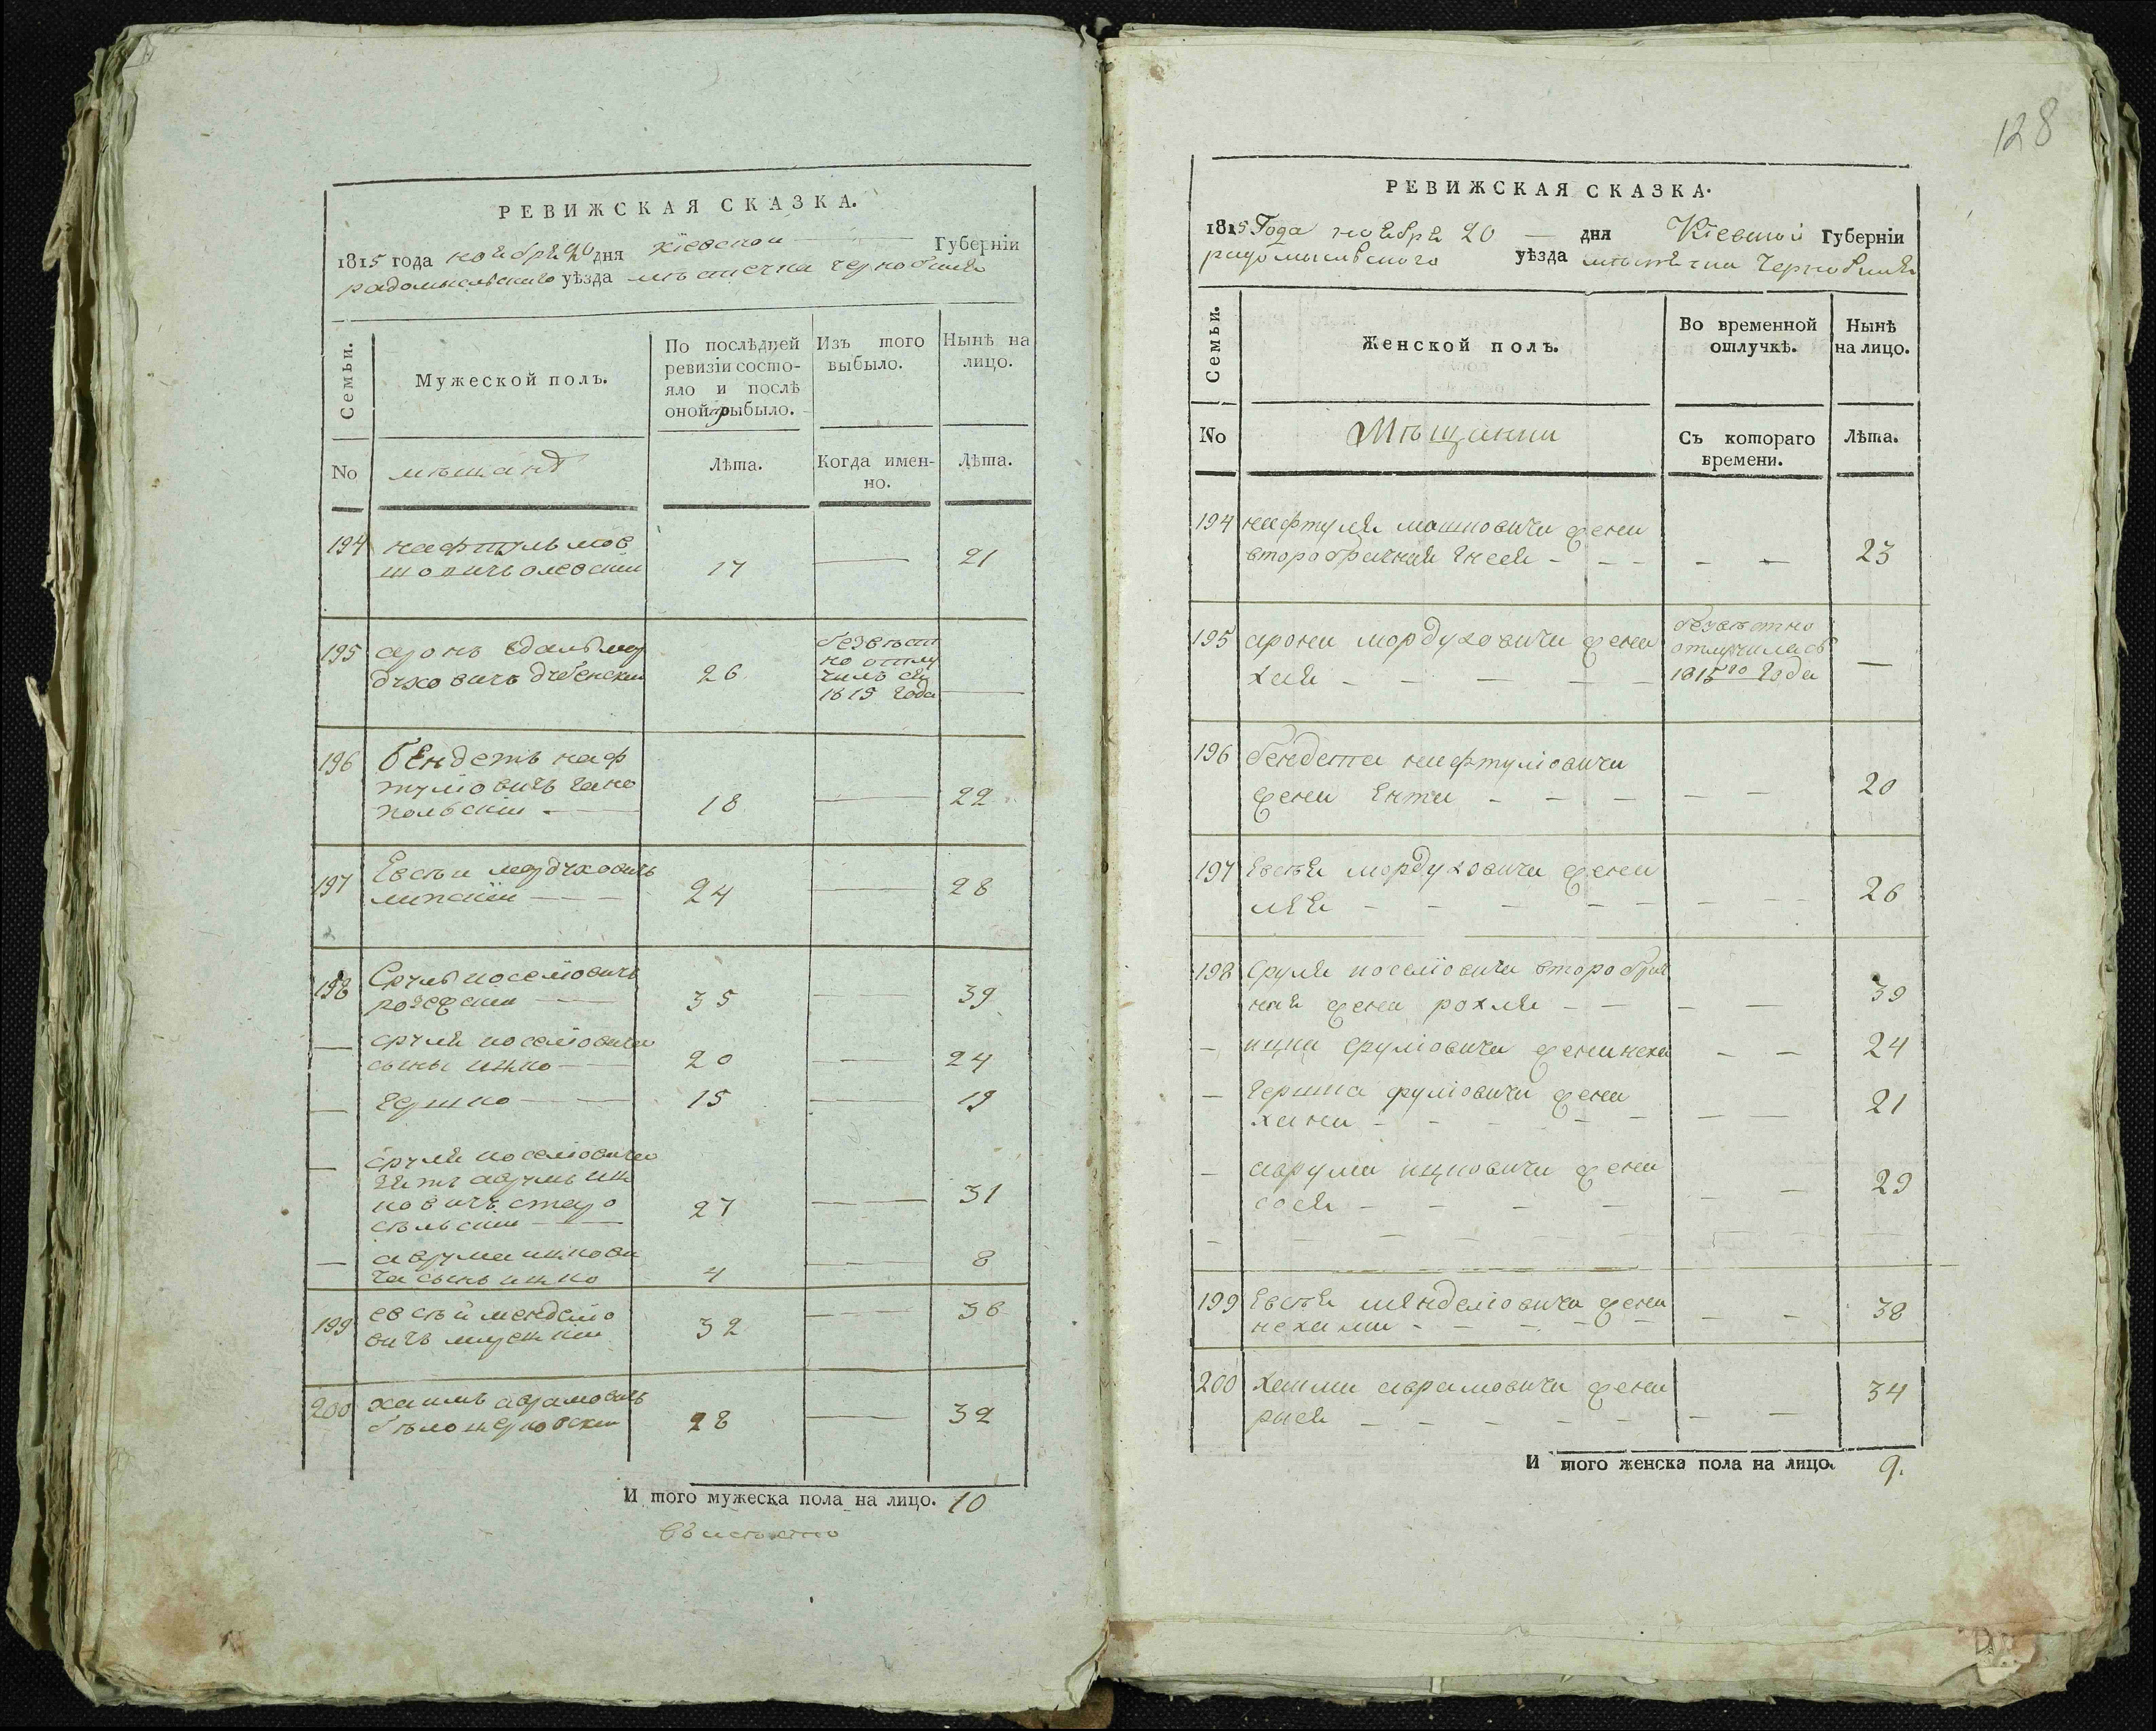 128
РЕВИЖСКАЯ СКАЗКА.
1815 года ноября 20 дня Кіевской Губерніи
радомысльского уѣзда мѣстечка чернобиля
Семьи.
Мужеской полъ.
По послѣдней
ревизіи состо-
яло и послѣ
оной прыбыло.
Изъ того
выбыло.
Нынѣ на
лицо.
No мѣщанъ
Лѣта.
Когда имен-
но.
Лѣта.
194 нафтуль мов
шовичъ олевскии 17 — 21
195 аронъ едаль мор
духовичъ дубенскии 26
безвѣст
но отлу
чился
1815 года —
196 бендетъ наф
туліовичъ гано
польскіи — 18 — 22
197 Евсѣи мордуховичъ
липскіи — 24 — 28
198 Сруль иоселіовичъ
розефскии — 35 — 39
— сруля иоселіовича
сыны ицко — 20 — 24
— гершко — 15 — 19
— сруля иоселіовича
зять аврумъ иц
ковичъ старо
сѣльскии — 27 — 31
— аврума ицкови
ча сынъ ицко 4 — 8
199 евсѣй менделіо
вичъ 32 — 36
200 хаимъ аврамовичъ
бѣлоцерковскии 28 — 32
И того мужеска пола на лицо. 10
РЕВИЖСКАЯ СКАЗКА.
1815 Года ноября 20 — дня Кіевской Губерніи
радомысльского уѣзда мѣстечка Чернобиля
Семьи.
Женской полъ.
Во временной
отлучкѣ.
Нынѣ
на лицо.
No Мѣщанки
Съ котораго
времени.
Лѣта.
194 нафтуля мошковича жена
второбрачная гнеся - - - - — 23
195 арона мордуховича жена
хая - — — — —
безвѣстно
отлучилась
1815го года —
196 бендета нафтуліовича
жена Ента - — — — — 20
197 Евсѣя мордуховича жена
лея - — — — — 26
198 Сруля иоселіовича второбрач
ная жена рохля - — — - — 39
- ицка сруліовича жена неха - — 24
— гершка сруліовича жена
хана - - - - — — 21
- аврума ицковича жена
сося - — - — - — 29
199 Евсѣя менделіовича жена
нехама - — - — — - 38
200 хаима аврамовича жена
рися — — - — - — — 34
И того женска пола на лицо. 9.